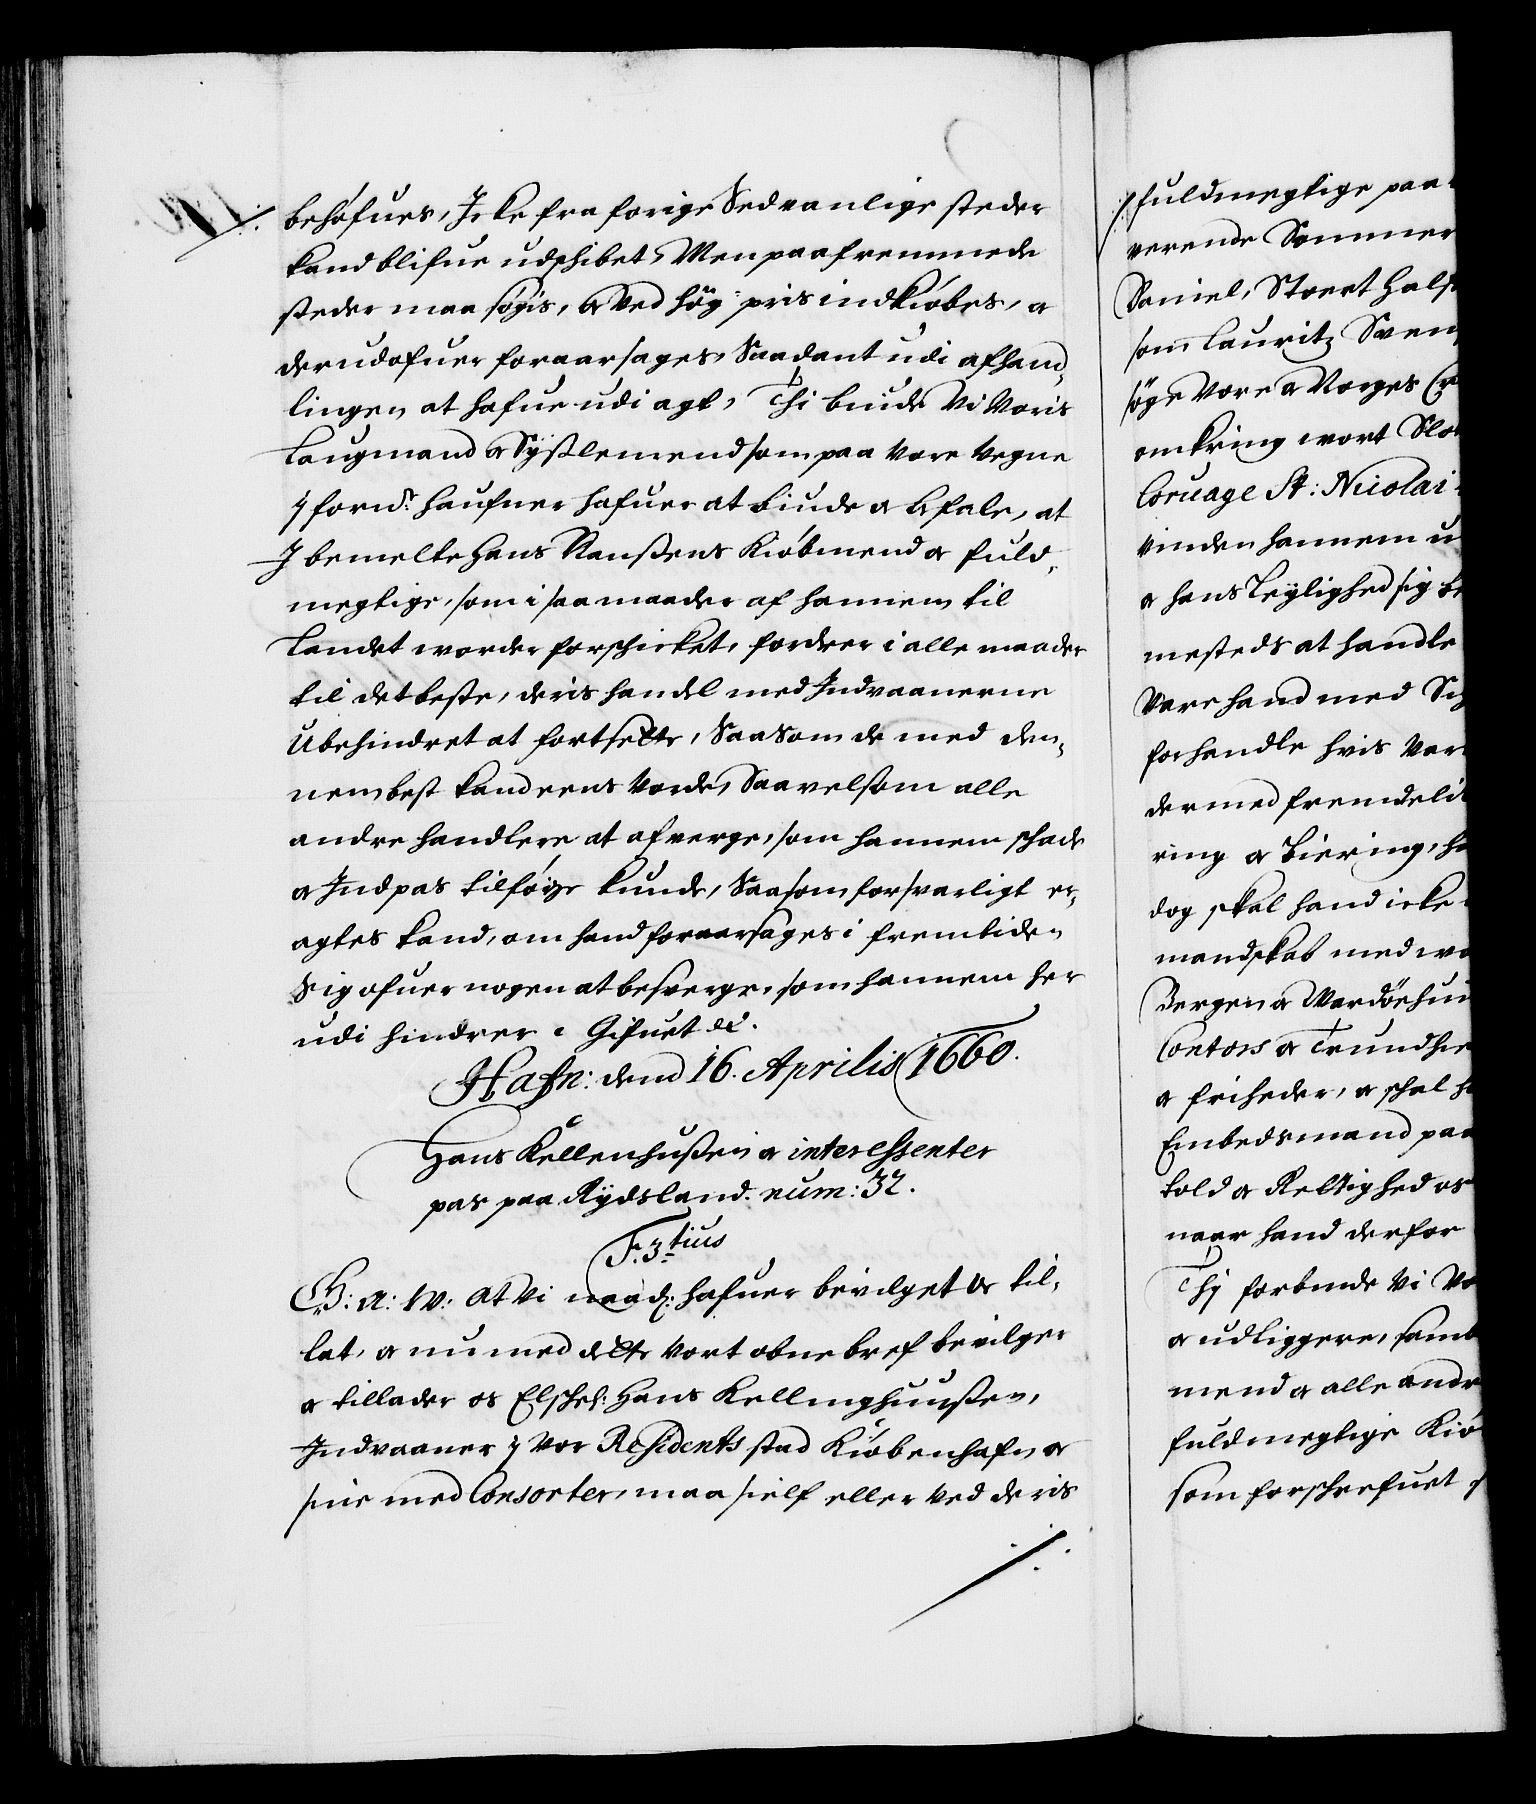 behöfues, Icke fra forige Sedvanlige steder
kand blifue udschibet, Men paa fremmede
steder maa søgis, & ved høy pris indkiøbes, &
derudofuer foraarsages, Saadant udi afhand-
lingen at hafue udi agt, Thi biude Vi Voris
Laugmand & Sysslemend som paa Vore Vegne
y forne: haufner hafuer at biude & befale, at
I bemelte Hans Nanssens Kiøbmend & fuld-
megtige, som i saa maader af hannem til
Landet worder forschicket, fordrer i alle maader
til det beste, deris handel med Indvaanerne
Ubehindret at fortsette, Saa Som de med den-
nem best kand eens Vorde, Saavelsom alle
andre handlere at afverge, som hannem schade
& Indpas tilføye kunde, Saasom forsvarligt er-
agtes kand, om hand foraarsages i fremtiden
Sig ofuer nogen at besverge, som hannem her
udi hindrer. Gifuet &c.
Hafn: dend 16. Aprilis 1660.
Hans Kellenhussen & interessenter
pas paa Rydsland. num: 32.
F. 3tius
G: A: W: At Vi naad: hafuer bevilget & til-
lat, & nu med dette Vort obne bref bevilger
& tillader os Elschel: Hans Kellinghuussen,
Indvaaner y Vor Residents stad Kiøbenhafn, &
sine med Consorter, maa sielf eller ved deris
fuldmegtige paa
verende Sommer
Daniel, Stoert Hals
som Lauritz Sven
søge Vore & Norges Cr
omkring wort Slo
Coruage St: Nicolai
vinden hannem u
& hans Leylighed sig be
mesteds at handle
Vare hand med Si
forhandle hvis Var
dermed fremdeli
ring & biering, ha
dog skal hand icke
mandskab med wo
Bergen & Wardöehuu
Contors & Trundhie
& friheder, & schal h
Embedsmand paa
told & Rettighed os
naar hand derfor
Thj forbiude Vi Vo
& udliggere, samb
mend & alle andre
fuldmegtige Kiø
som forschrefuet s